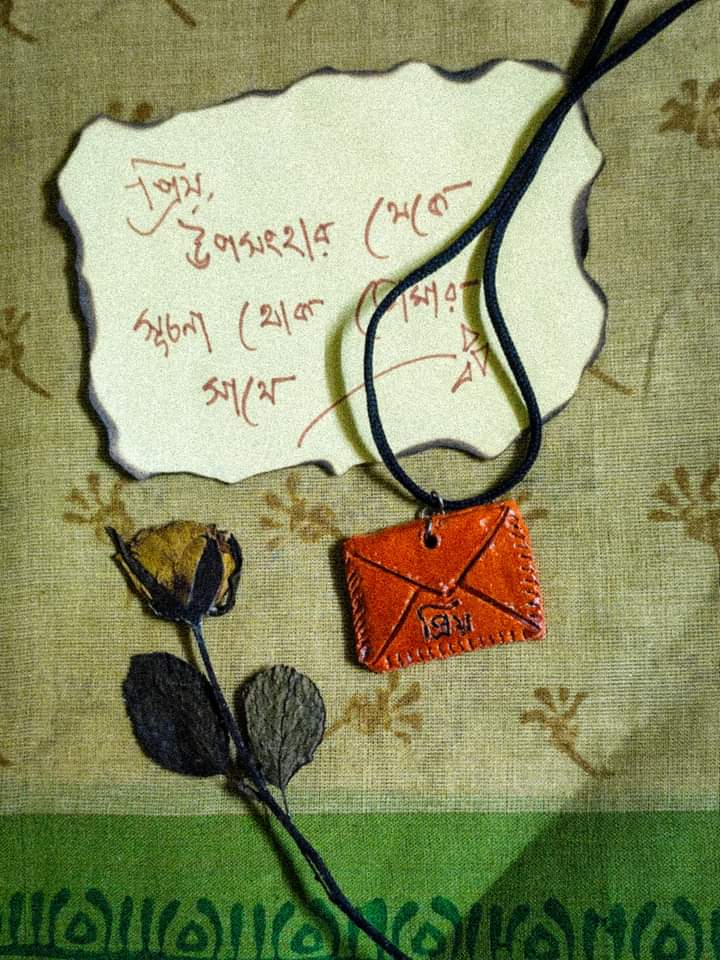 প্রিয়,
উপসংহার থেকে
সূচনা থোক তোমার
সাথে
প্রিয়